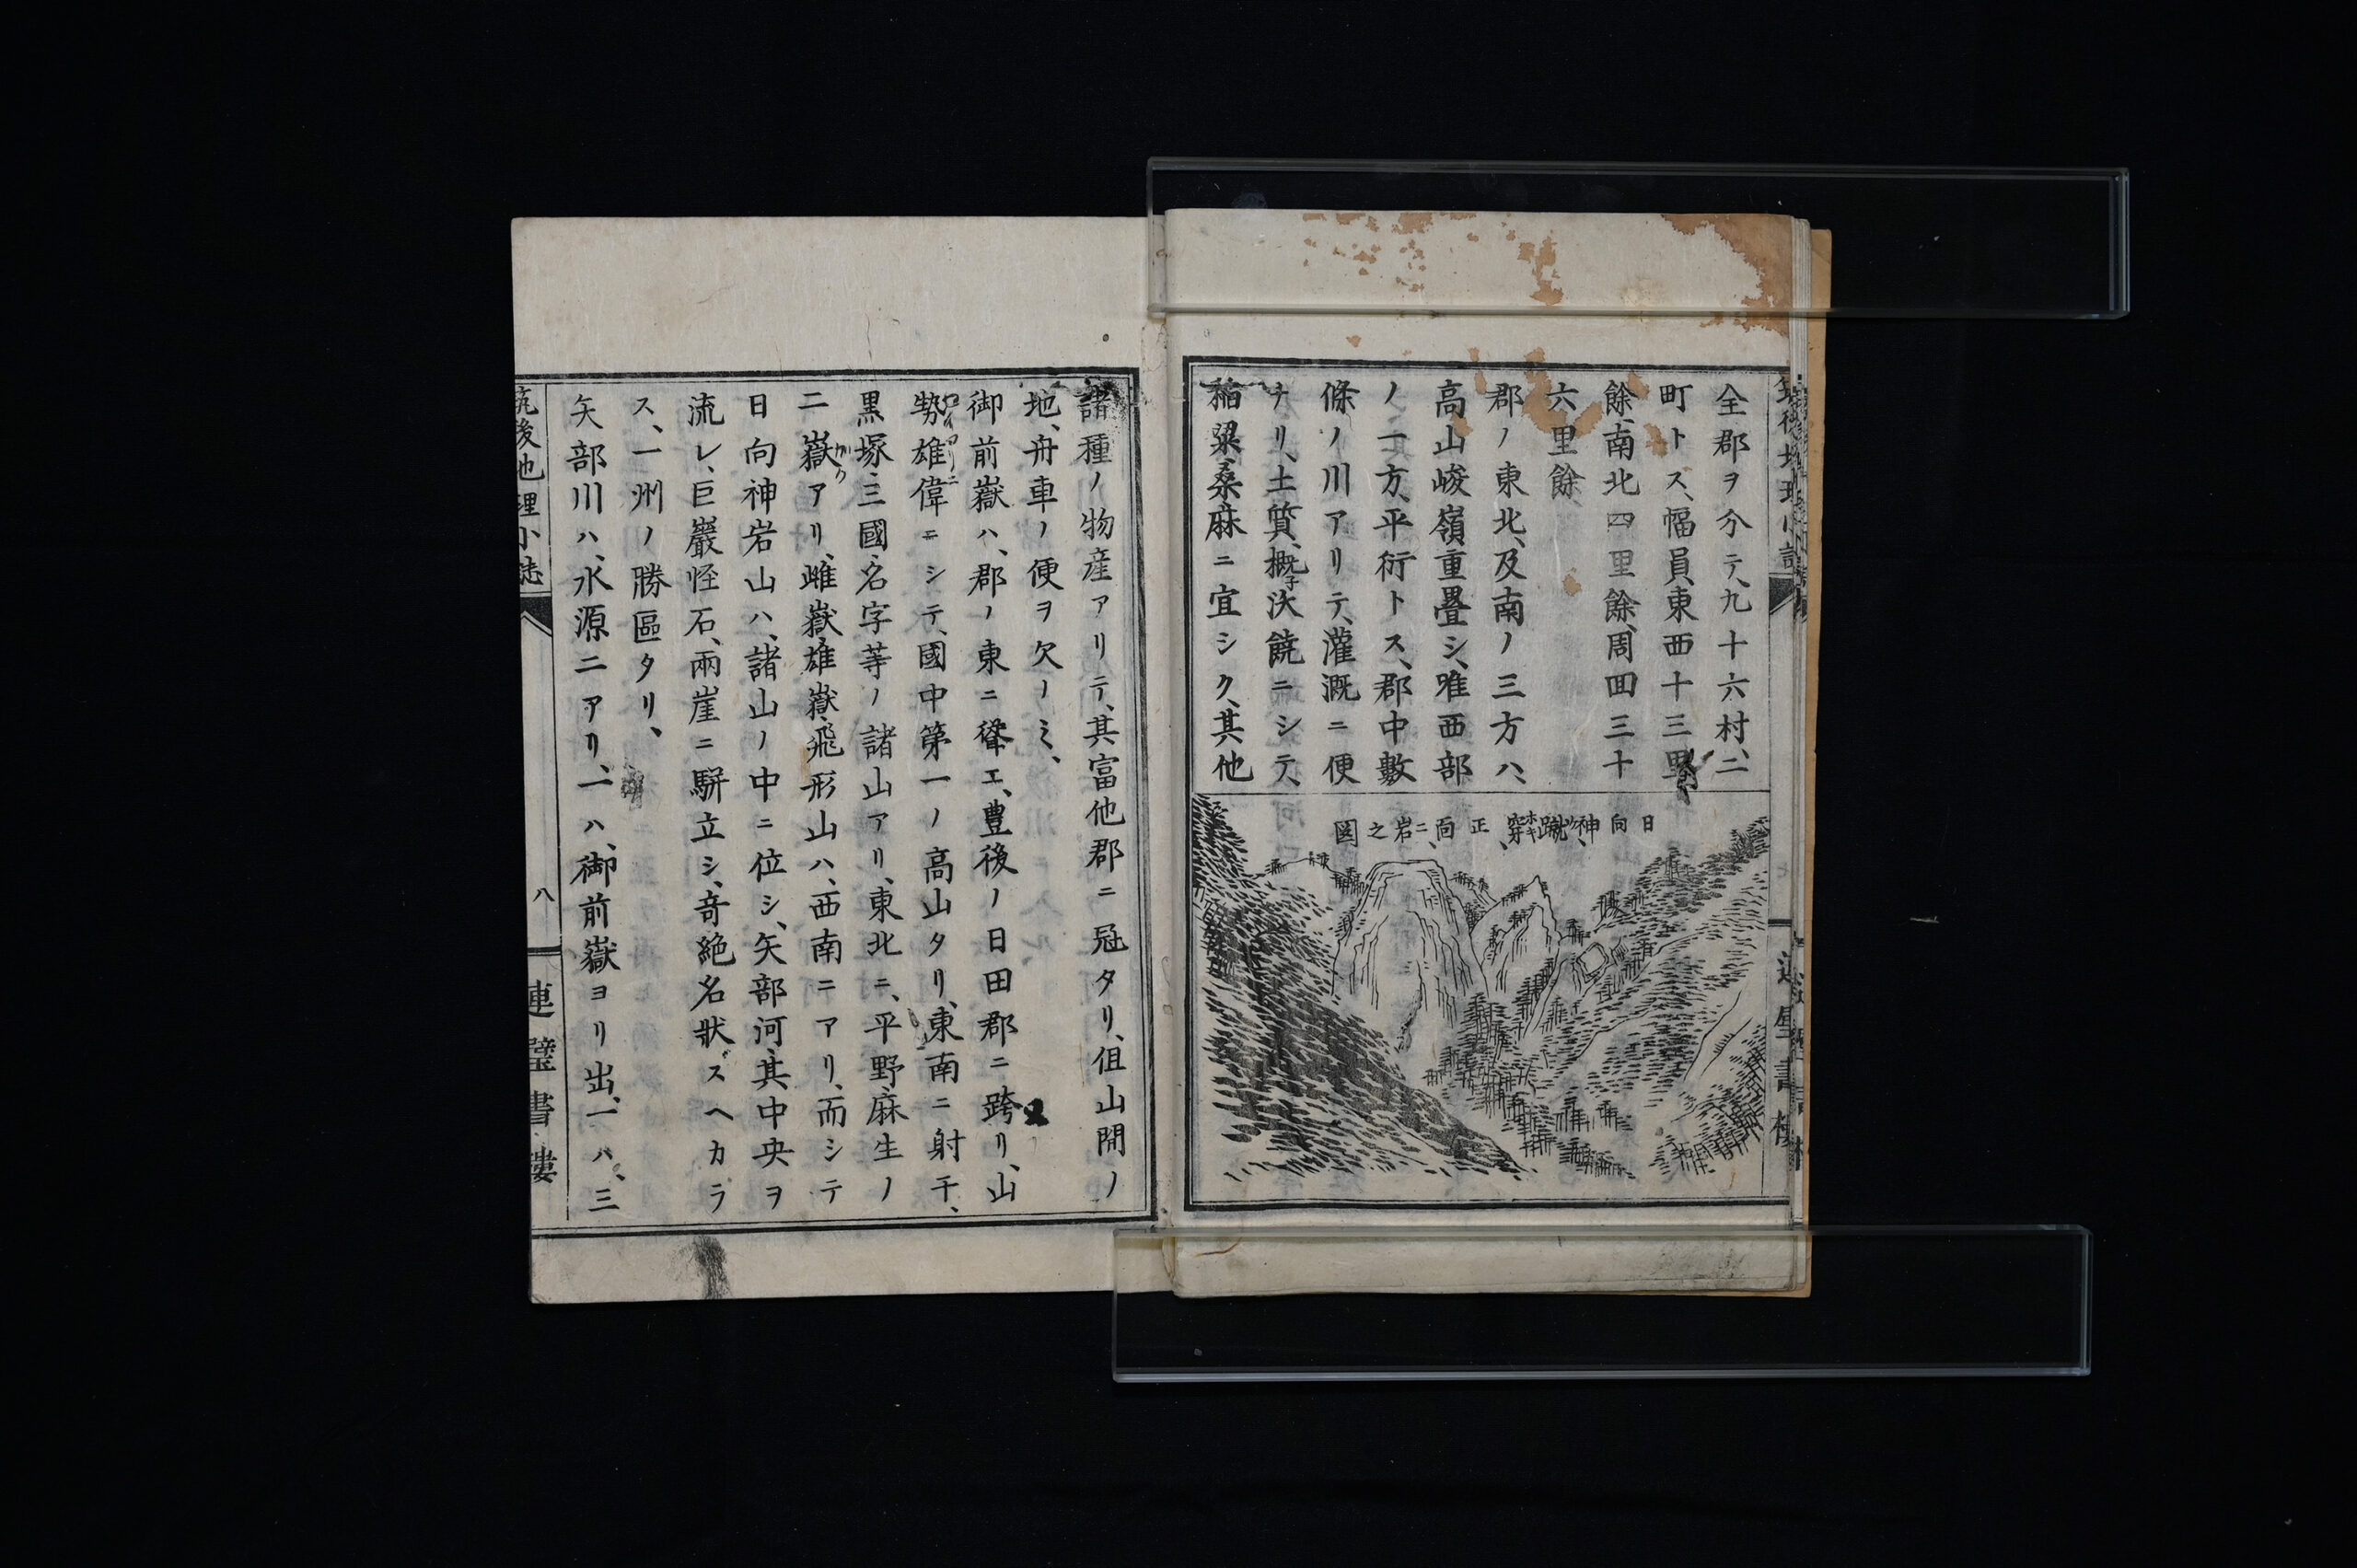 全郡ヲ分テ、九十六村、二
町トス、幅員、東西十三里
餘、南北四里餘、周囬三十
六里餘
郡ノ東北、及南ノ三方ハ、
高山峻嶺重疊シ、唯西部
ノ一方、平衍トス、郡中數
條ノ川アリテ、灌漑ニ便
ナリ、土質、概子沃饒ニシテ、
稲粱、桑麻ニ宜シク、其他
日向神、蹴穿、正面、二岩之圖
諸種ノ物産アリテ、其富他郡ニ冠タリ、但山間ノ
地、舟車ノ便ヲ欠ノミ、
御前嶽ハ、郡ノ東ニ聳エ、豊後ノ日田郡ニ跨リ、山
勢雄偉ニシテ、國中第一ノ高山タリ、東南ニ射干、
黒塚、三國、名字等ノ諸山アリ、東北ニ、平野、麻生ノ
二嶽アリ、雌嶽、雄嶽、飛形山ハ、西南ニアリ、而シテ
日向神岩山ハ、諸山ノ中ニ位シ、矢部河、其中央ヲ
流レ、巨巖怪石、兩崖ニ駢立シ、奇絶名狀スヘカラ
ス、一州ノ勝區タリ、
矢部川ハ、水源二アリ、一ハ、御前嶽ヨリ出、一ハ、三
筑後地理小誌
八
連璧書樓